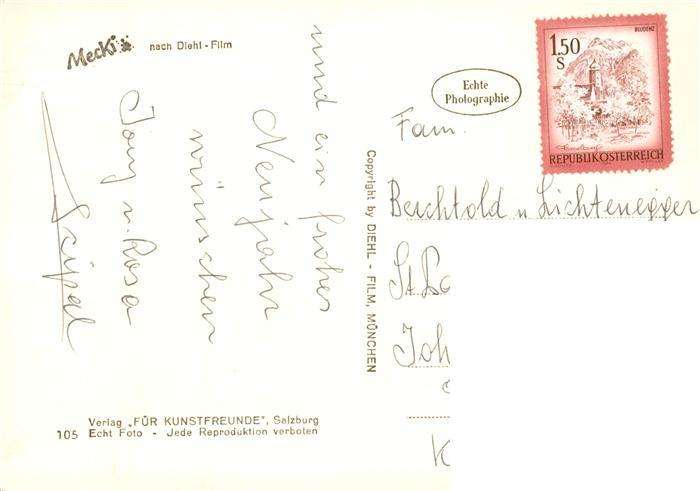 Mecki nach Diehl - Film
und ein frohes
Neujahr
wünschen
u. Rosa
Copyright by DIEHL - FILM, MÜNCHEN
Verlag „FÜR KUNSTFREUNDE", Salzburg
105 Echt Foto - Jede Reproduktion verboten
Echte
Photographie
1.50
S
BLUDENZ
REPUBLIK ÖSTERREICH
Fam.
Berchtold u Lichtenegger
St.
Joh
K